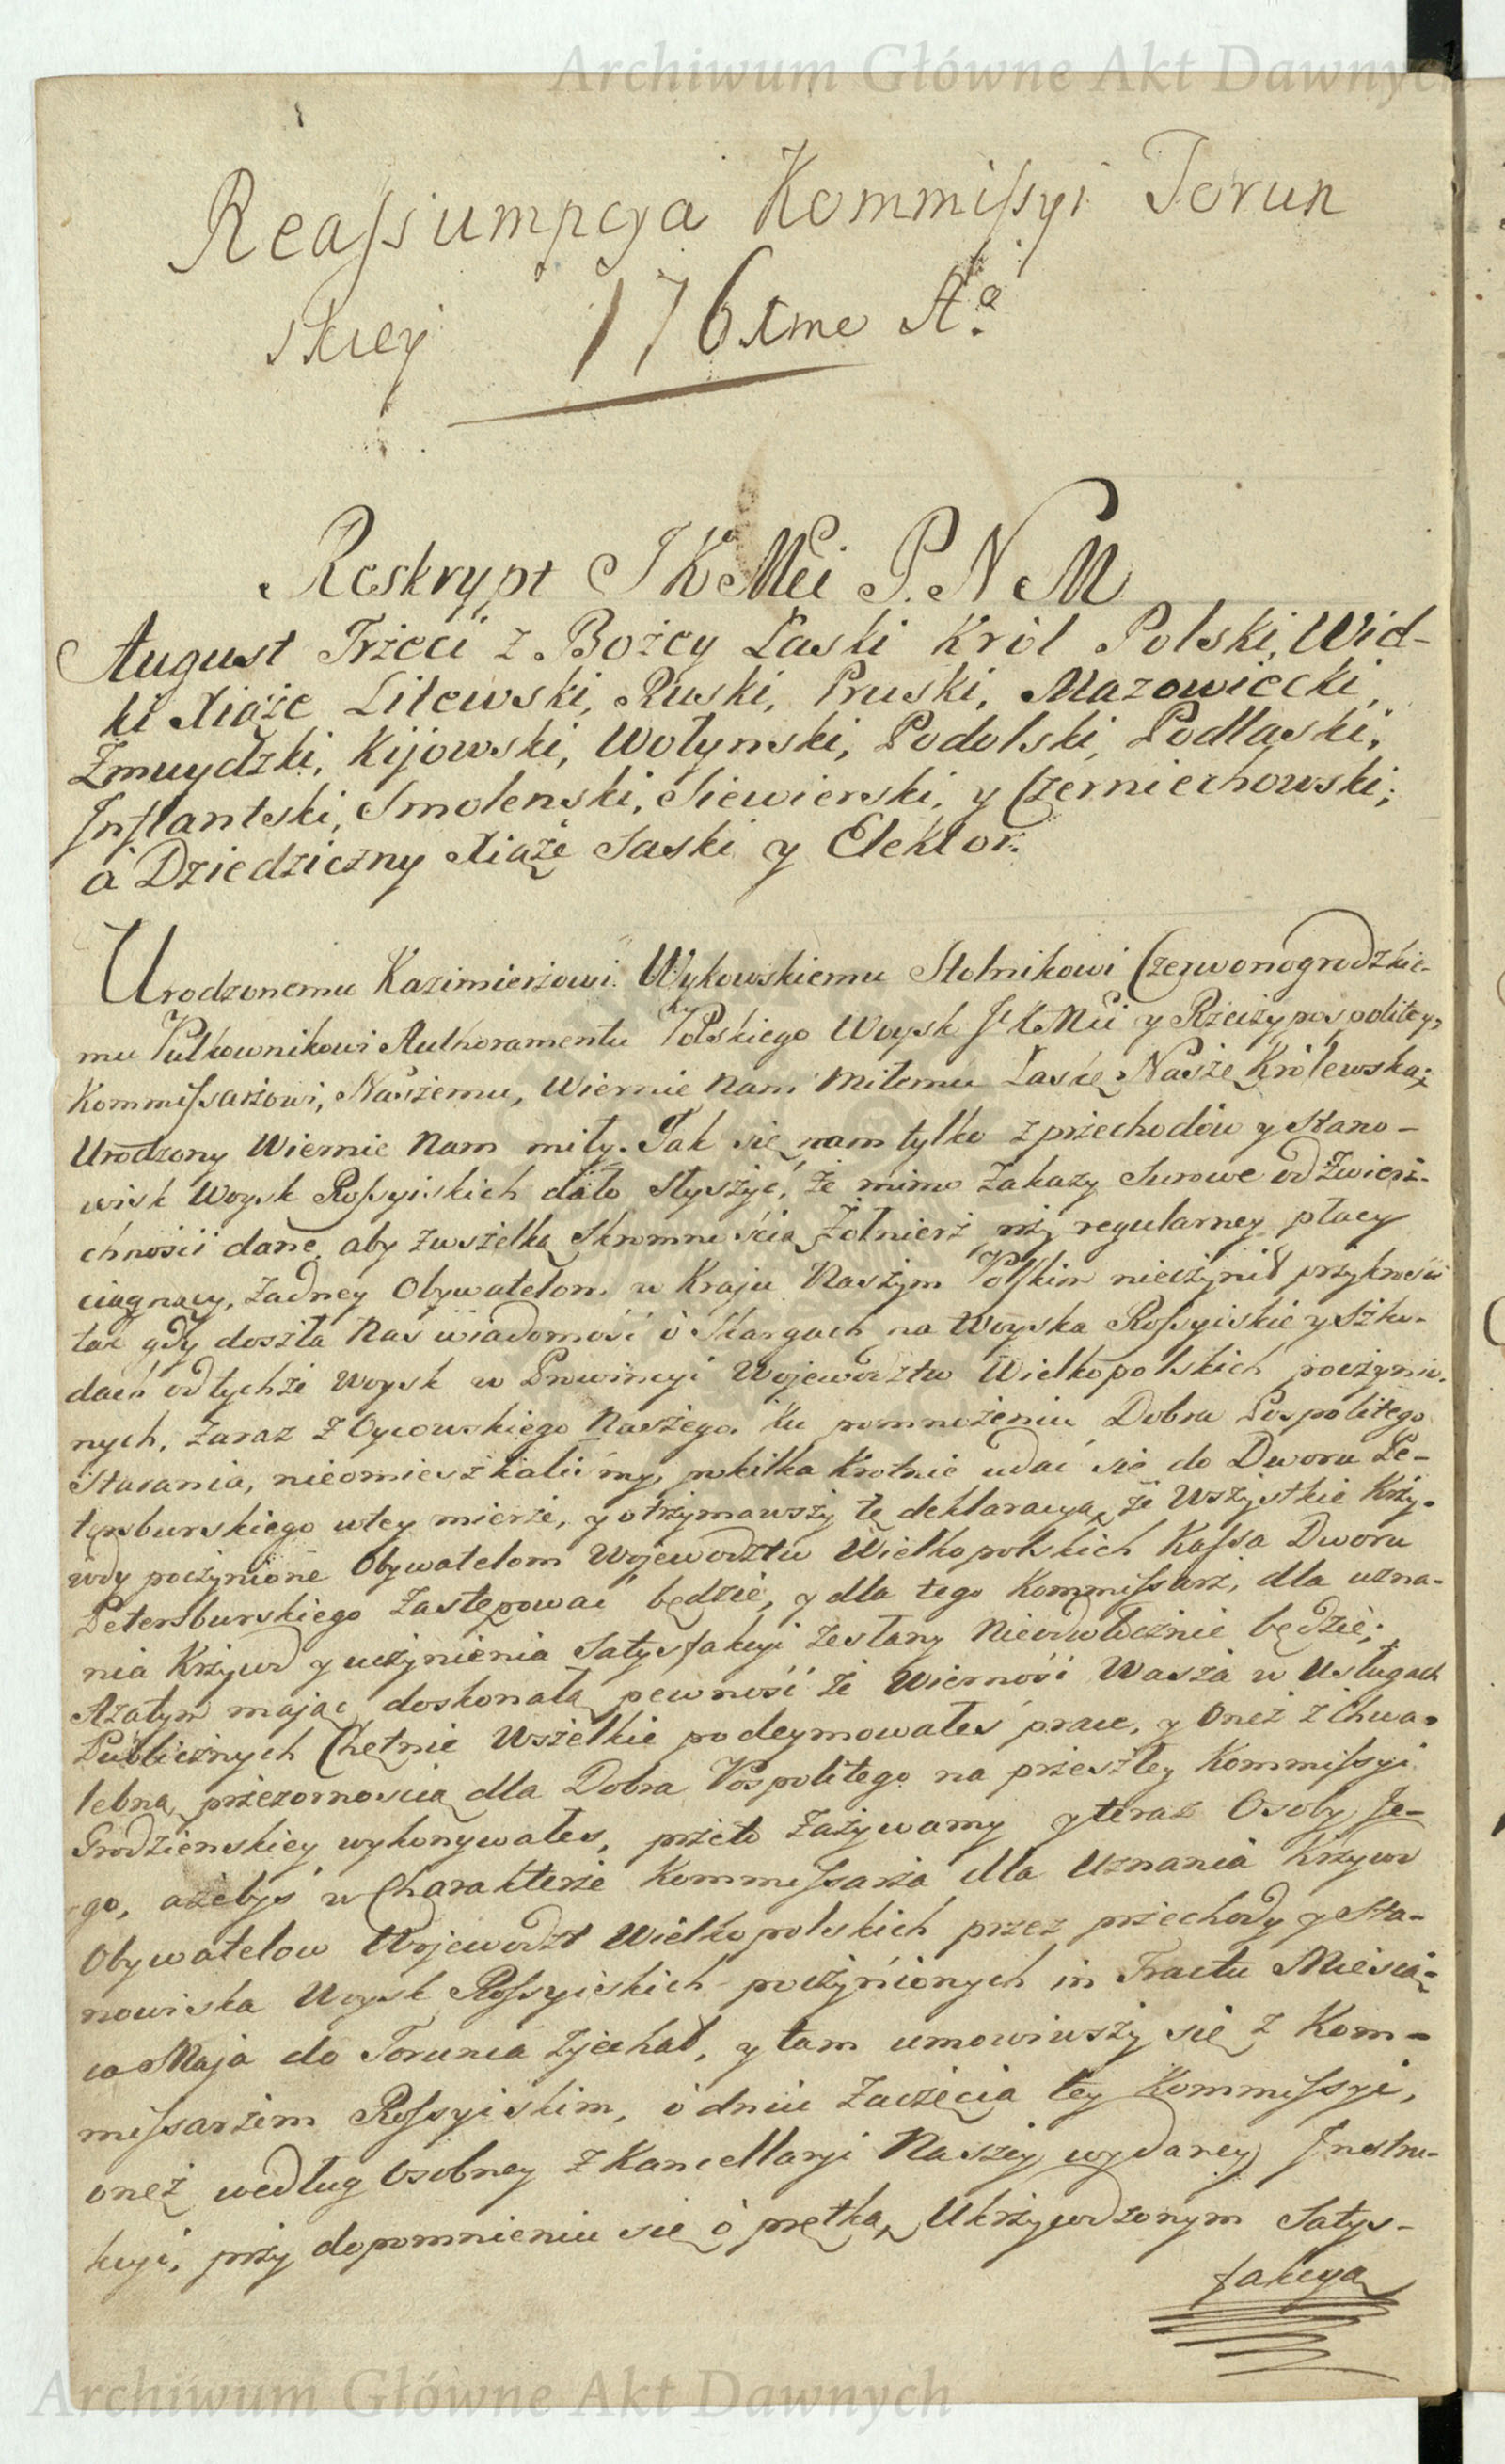 Archiwum Główne Akt Dawnych
Reaſsumpcya Kommiſsyi Torun
skiey 176 Ao
Reskrypt JKMci P. N M
August Trżeci z Bożey Łaski Król Polski, Wiel-
ki Xiąże Litewski, Ruski, Pruski, Mazowiecki,
Zmuydzki, Kijowski, Wołynski, Podolski, Podlaski,
Inflantski, Smolenski, Siewierski, y Czerniechowski;
á Dziedziczny Xiąże Saski y Elektor.
Urodzonemu Kazimierżowi Wykowskiemu Stolnikowi Czerwonogrodzkie-
mu Pułkownikowi Authoramentu Polskiego Woysk JKMci y Rżeczypospolitey,
Kommiſsarżowi, Naszemu, Wiernie Nam Miłemu Łaskę Naszę Królewską;
Urodzony Wiernie Nam miły. Jak się nam tylko z przechodów y Stano-
wisk Woysk Roſsyiskich dało słyszyć, że mimo Zakazy Surowe od Zwierż-
chności dane, aby zwszelką Skromnością Żołnierż prży regularney płacy
ciągnący, żadney Obywatelom w Kraju Naszym Polskim nieczynił przykrości
tak gdy doszła Nas wiadomość ó Skargach na Woyska Roſsyiskie y szko-
dach od tychże Woysk w Prowincyi Wojewodztw Wielkopolskich poczynio-
nych, Zaraz z Oycowskiego Naszego, ku pomnożeniu Dobra Pospolitego
Starania, nieomieszkaliśmy, pokilka Krotnie udać się do Dworu Pe-
tersburskiego wtey mierże, y otrżymawszy tę deklaracyą, że Wszystkie Krży-
wdy poczynione Obywatelom Wojewodztw Wielkopolskich Kaſsa Dworu
Petersburskiego Zastępować będzie, y dla tego Kommiſsarż, dla uzna-
nia Krżywd y uczynienia Satysfakcyi Zesłany Nieodwłocznie będzie;
Azatym mając doskonałą pewność że Wierność Wasza w Usługach
Publicznych Chętnie Wszelkie podeymowałeś prace, y Oneż z Chwa-
lebną przezornoscią dla Dobra Pospolitego na przeszłey Kommiſsyi
Grodzienskiey wykonywałes, prżeto Zażywamy y teraz Osoby Je-
go, ażebyś w Charakterże Kommiſsarża dla Uznania Krżywd
Obywatelow Wojewodzt Wielkopolskich przez prżechody y Sta-
nowiska Woysk Roſsyiskich poczynionych in Tractu Miesią-
ca Maja do Torunia Zjechał, y tam umowiwszy się z Kom-
miſsarżem Roſsyiskim, ó dniu Zaczęcia tey Kommiſsyi,
oneż według Osobney z Kancellaryi Naszey wydaney Instru-
kcyi, prży dopomnieniu się ó prętką Ukrżywdzonym Satys-
fakcyą
Archiwum Główne Akt Dawnych